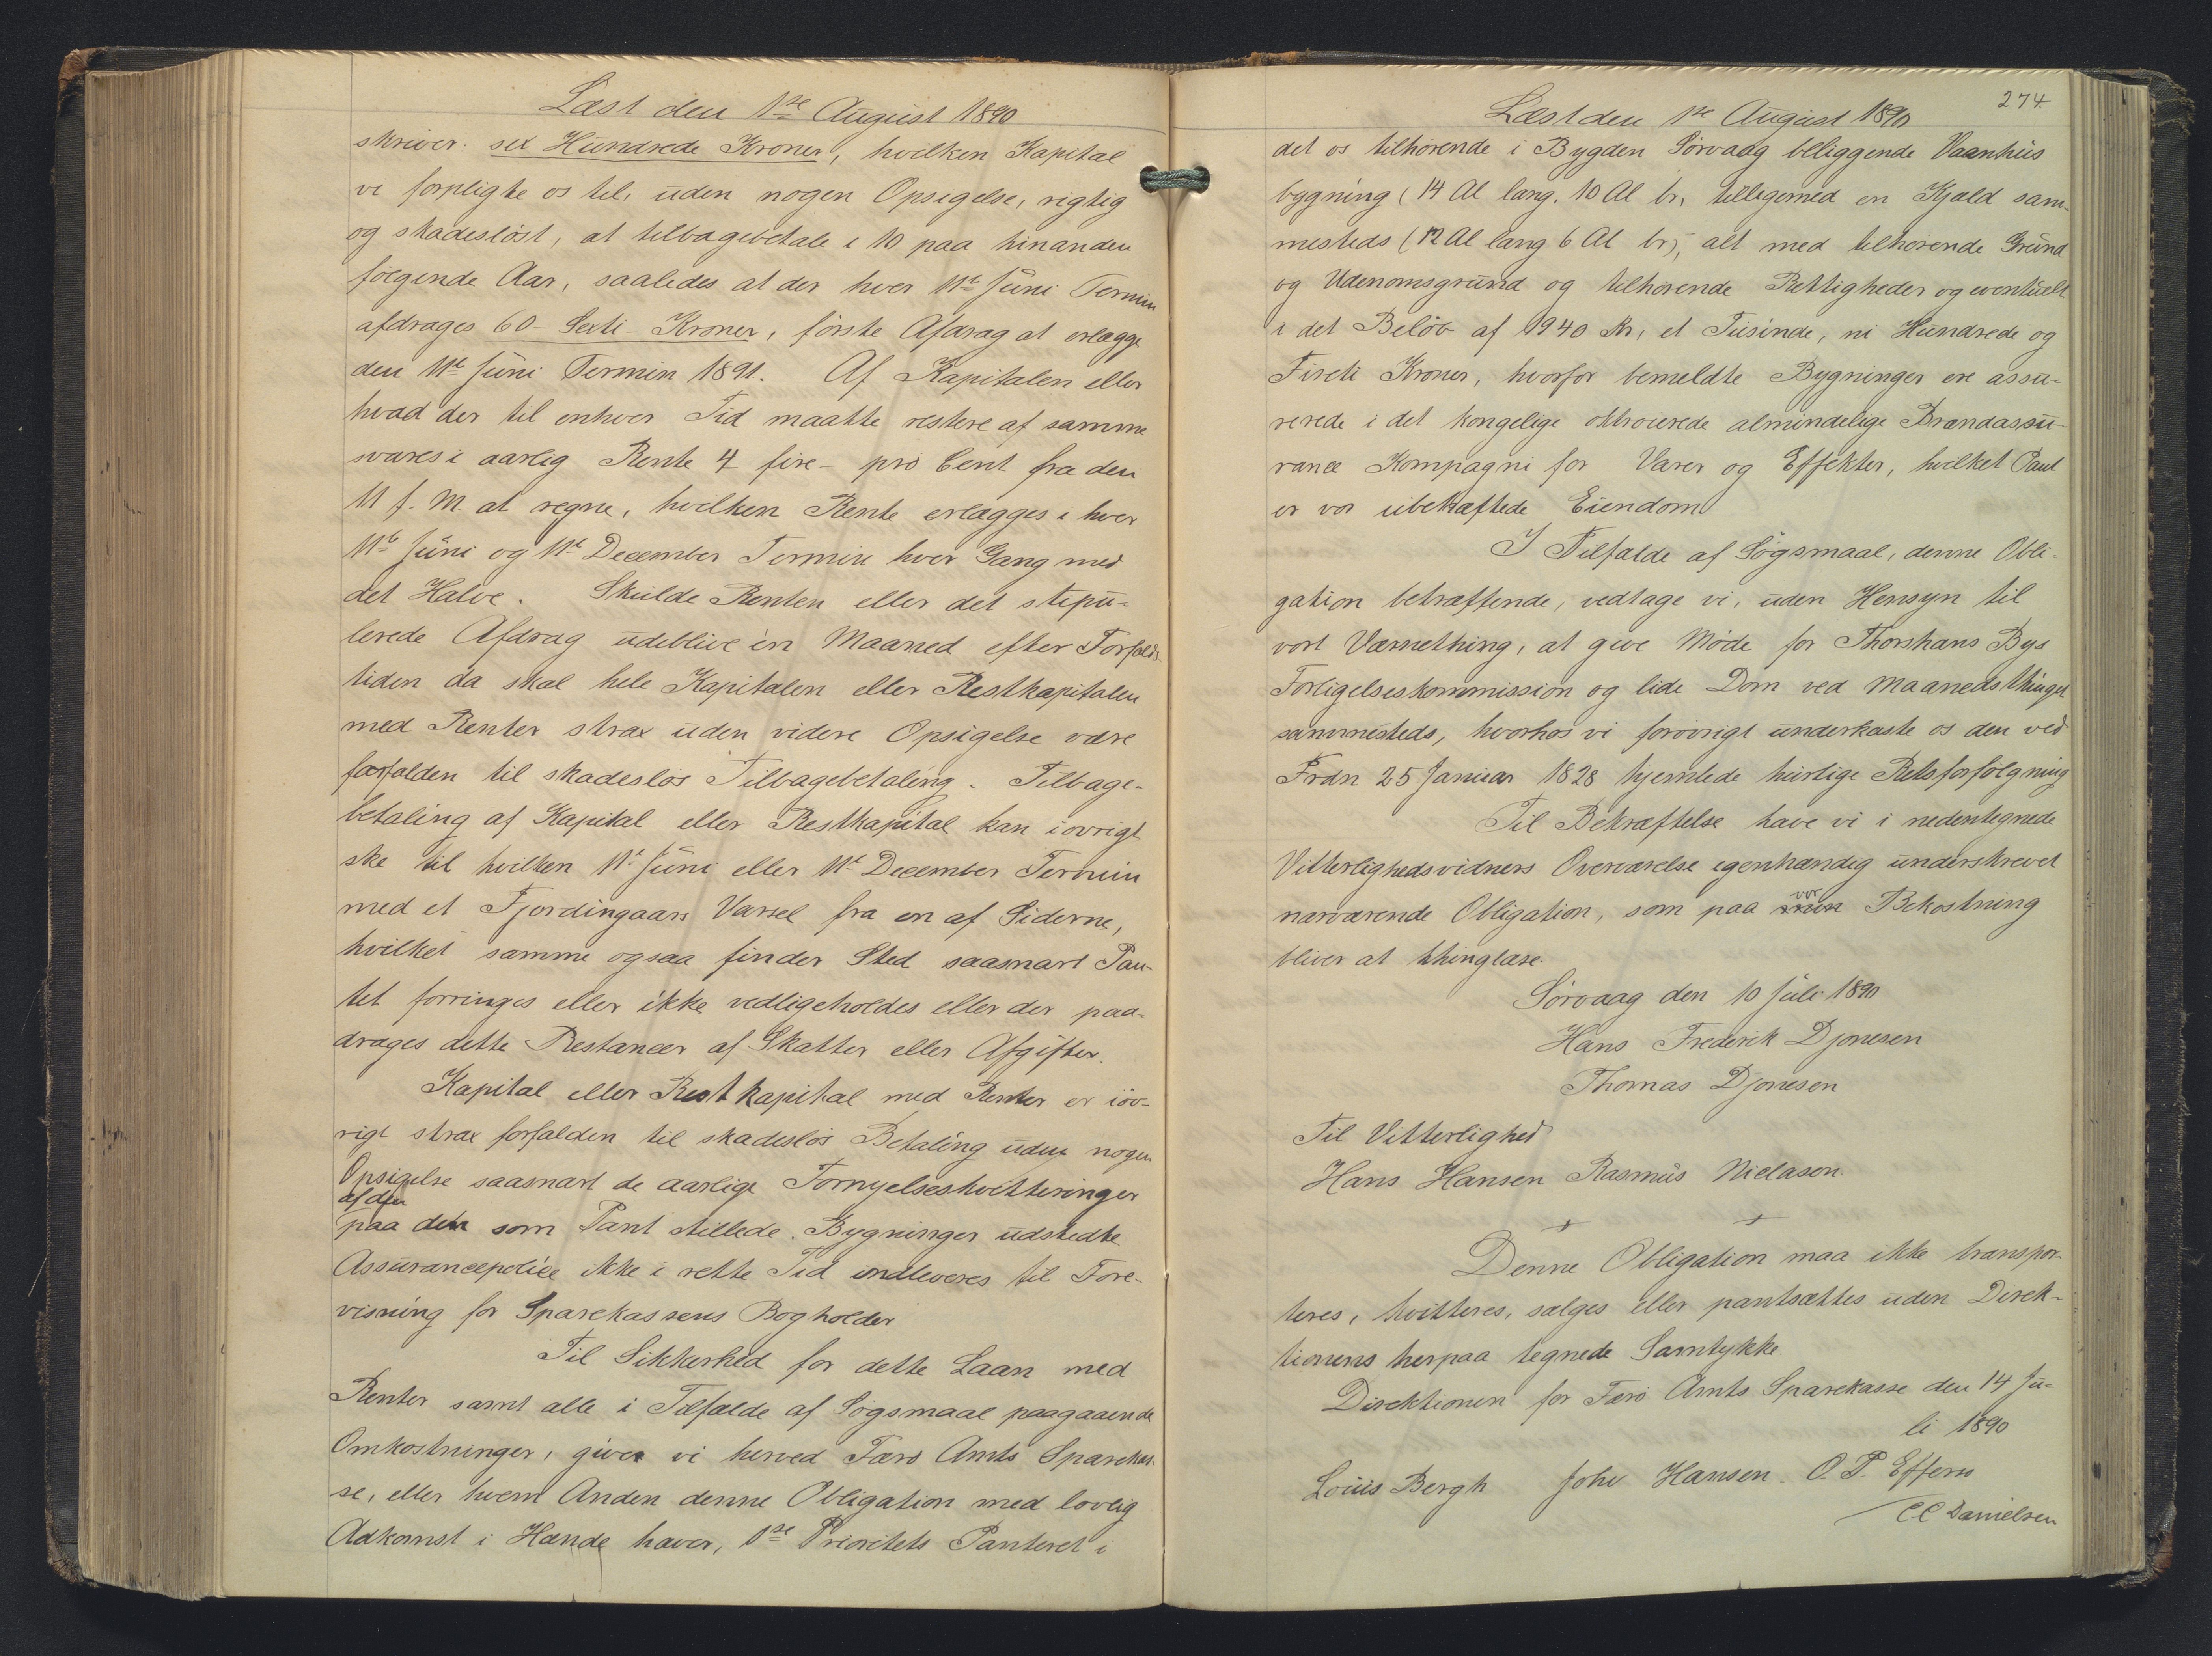 Læst den 1ste August 1890
skriver: sex Hundrede Kroner, hvilken Kapital
vi forpligte os til, uden nogen Opsigelse, rigtig
og skadesløst, at tilbagebetale i 10 paa hinanden
følgende Aar, saaledes at der hver 11te Juni Termin
afdrages 60 - Sexti - Kroner, første Afdrag at erlægge
den 11te Juni Termin 1891. Af Kapitalen eller
hvad der til enhver Tid maatte restere af samme
svares i aarlig Rente 4 fire - pro Cent fra den
11 f. M. at regne, hvilken Rente erlægges i hver
11te Juni og 11te December Termin hver Gang med
det Halve. Skulde Renten eller det stipu-
lerede Afdrag udeblive én Maaned efter Forfalds-
tiden da skal hele Kapitalen eller Restkapitalen
med Renter strax uden videre Opsigelse være
forfalden til skadesløs Tilbagebetaling. Tilbage-
betaling af Kapital eller Restkapital kan iøvrigt
ske til hvilken 11te Juni eller 11te December Termin
med et Fjerdingaars Varsel fra en af Siderne,
hvilket samme ogsaa finder Sted saasnart Pan-
tet forringes eller ikke vedligeholdes eller der paa-
drages dette Restancer af Skatter eller Afgifter.
Kapital eller Restkapital med Renter er iøv-
rigt strax forfalden til skadesløs Betaling uden nogen
Opsigelse saasnart de aarlige Fornyelseskvitteringer
af den
paa den som Pant stillede Bygninger udstedte
Assurancepolice ikke i rette Tid indleveres til Fore-
visning for Sparekassens Bogholder
Til Sikkerhed for dette Laan med
Renter samt alle i Tilfælde af Søgsmaal paagaaende
Omkostninger, giver vi herved Færø Amts Sparekas-
se, eller hvem Anden denne Obligation med lovlig
Adkomst i Hænde haver, 1ste Prioritets Panteret i
274
Læst den 1ste August 1890
det os tilhørende i Bygden Sørvaag beliggende Vaanhus
bygning (14 Al lang, 10 Al br, tilligemed en Kjæld sam-
mesteds (12 Al lang 6 Al br), alt med tilhørende Grund
og Udenomsgrund og tilhørende Rettigheder og eventuelt
i det Beløb af 1940 Kr, et Tusinde, ni Hundrede og
Fireti Kroner, hvorfor bemeldte Bygninger ere assu-
rerede i det kongelige oktroierede almindelige Brandassu-
rance Kompagni for Varer og Effekter, hvilket Pant
er vor ubehæftede Eiendom
I Tilfælde af Søgsmaal, denne Obli-
gation betræffende, vedtage vi, uden Hensyn til
vort Værnething, at give Møde for Thorshavns Bys
Forligelseskommission og lide Dom ved Maanedsthinget
sammesteds, hvorhos vi forøvrigt underkaste os den ved
Frdn 25 Januar 1828 hjemlede hurtige Retsforfølgning
Til Bekræftelse have vi i nedentegnede
Vitterlighedsvidners Overværelse egenhændig underskrevet
nærværende Obligation, som paa vor Bekostning
bliver at thinglæse.
Sørvaag den 10 Juli 1890
Hans Frederik Djonesen
Thomas Djonesen
Til Vitterlighed
Hans Hansen Rasmus Nielasen
Denne Obligation maa ikke transpor-
teres, kvitteres, sælges eller pantsættes uden Direk-
tionens herpaa tegnede Samtykke
Direktionen for Færø Amts Sparekasse den 14 Ju-
li 1890
Louis Bergh Johs Hansen. O. P. Effersø
CC Danielsen